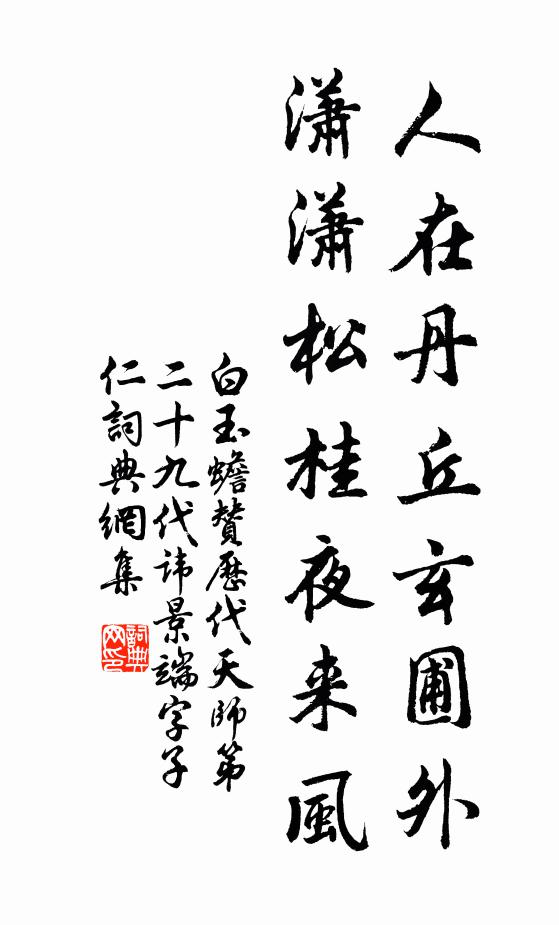 人在丹丘玄圃外
瀟瀟松桂夜来風
白玉蟾贊歷代天師第
二十九代諱景端字子
仁詞典網集
詞典网印